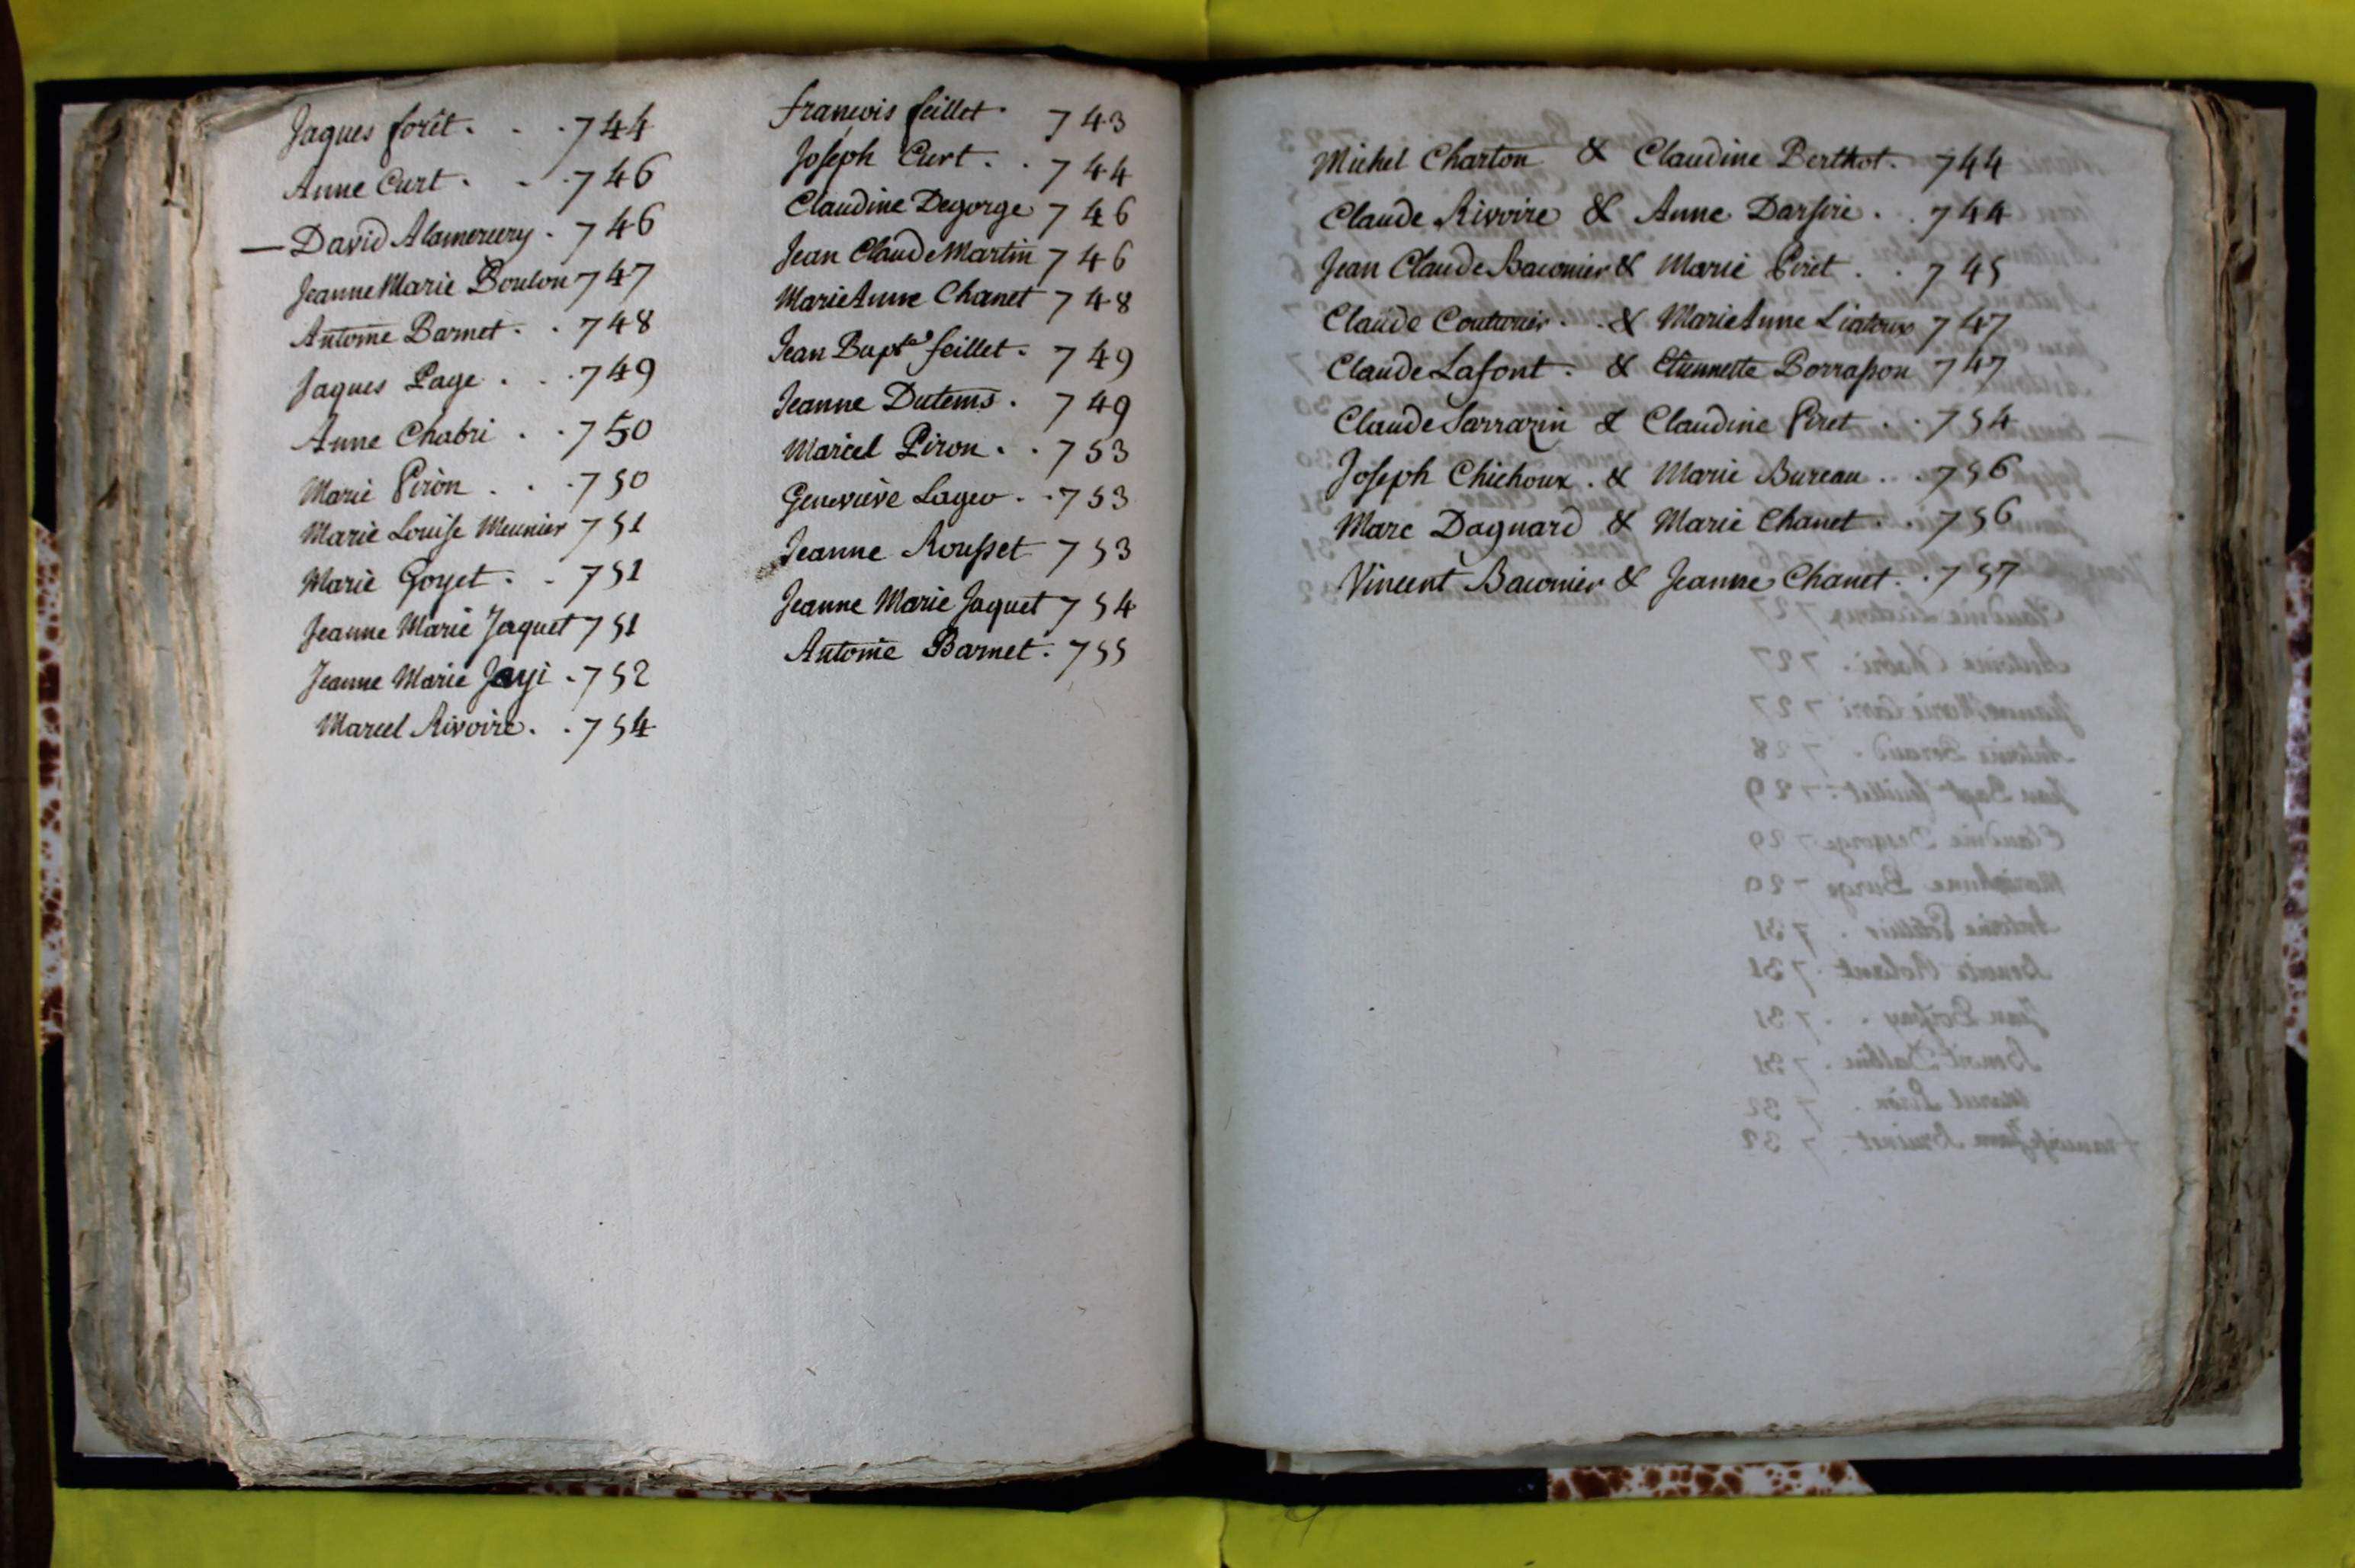 Jaques forêt . . . 744
Anne Curt . . . 746
— David Alamercery . 746
Jeanne Marie Boulon 747
Antoine Barnet . . 748
Jaques Page . . . 749
Anne Chabri . . 750
Marie Piron . . . 750
Marie Louise Meunier 751
Marie Goyet . . 751
Jeanne Marie Jaquet 751
Jeanne Marie Jayi . 752
Marcel Rivoire . . 754
francois feillet . 743
Joseph Curt . . 744
Claudine Degorge 746
Jean Claude Martin 746
Marie Anne Chanet 748
Jean Bapte feillet . 749
Jeanne Dutems . 749
Marcel Piron . . 753
Genevieve Lageo . . 753
Jeanne Rousset 753
Jeanne Marie Jaquet 754
Antoine Barnet . 755
Michel Charton & Claudine Berthot . 744
Claude Rivoire & Anne . . 744
Jean Claude Baconier & Marie Piret . . 745
Claude Couturier . . & Marie Anne Liatoux 747
Claude Lafont . & Etiennette Borrasson 747
Claude Sarrazin & Claudine Piret . . 754
Joseph Chichoux . & Marie Bureau . . 756
Marc Dagnard & Marie Chanet . . 756
Vincent Baconier & Jeanne Chanet . . 757